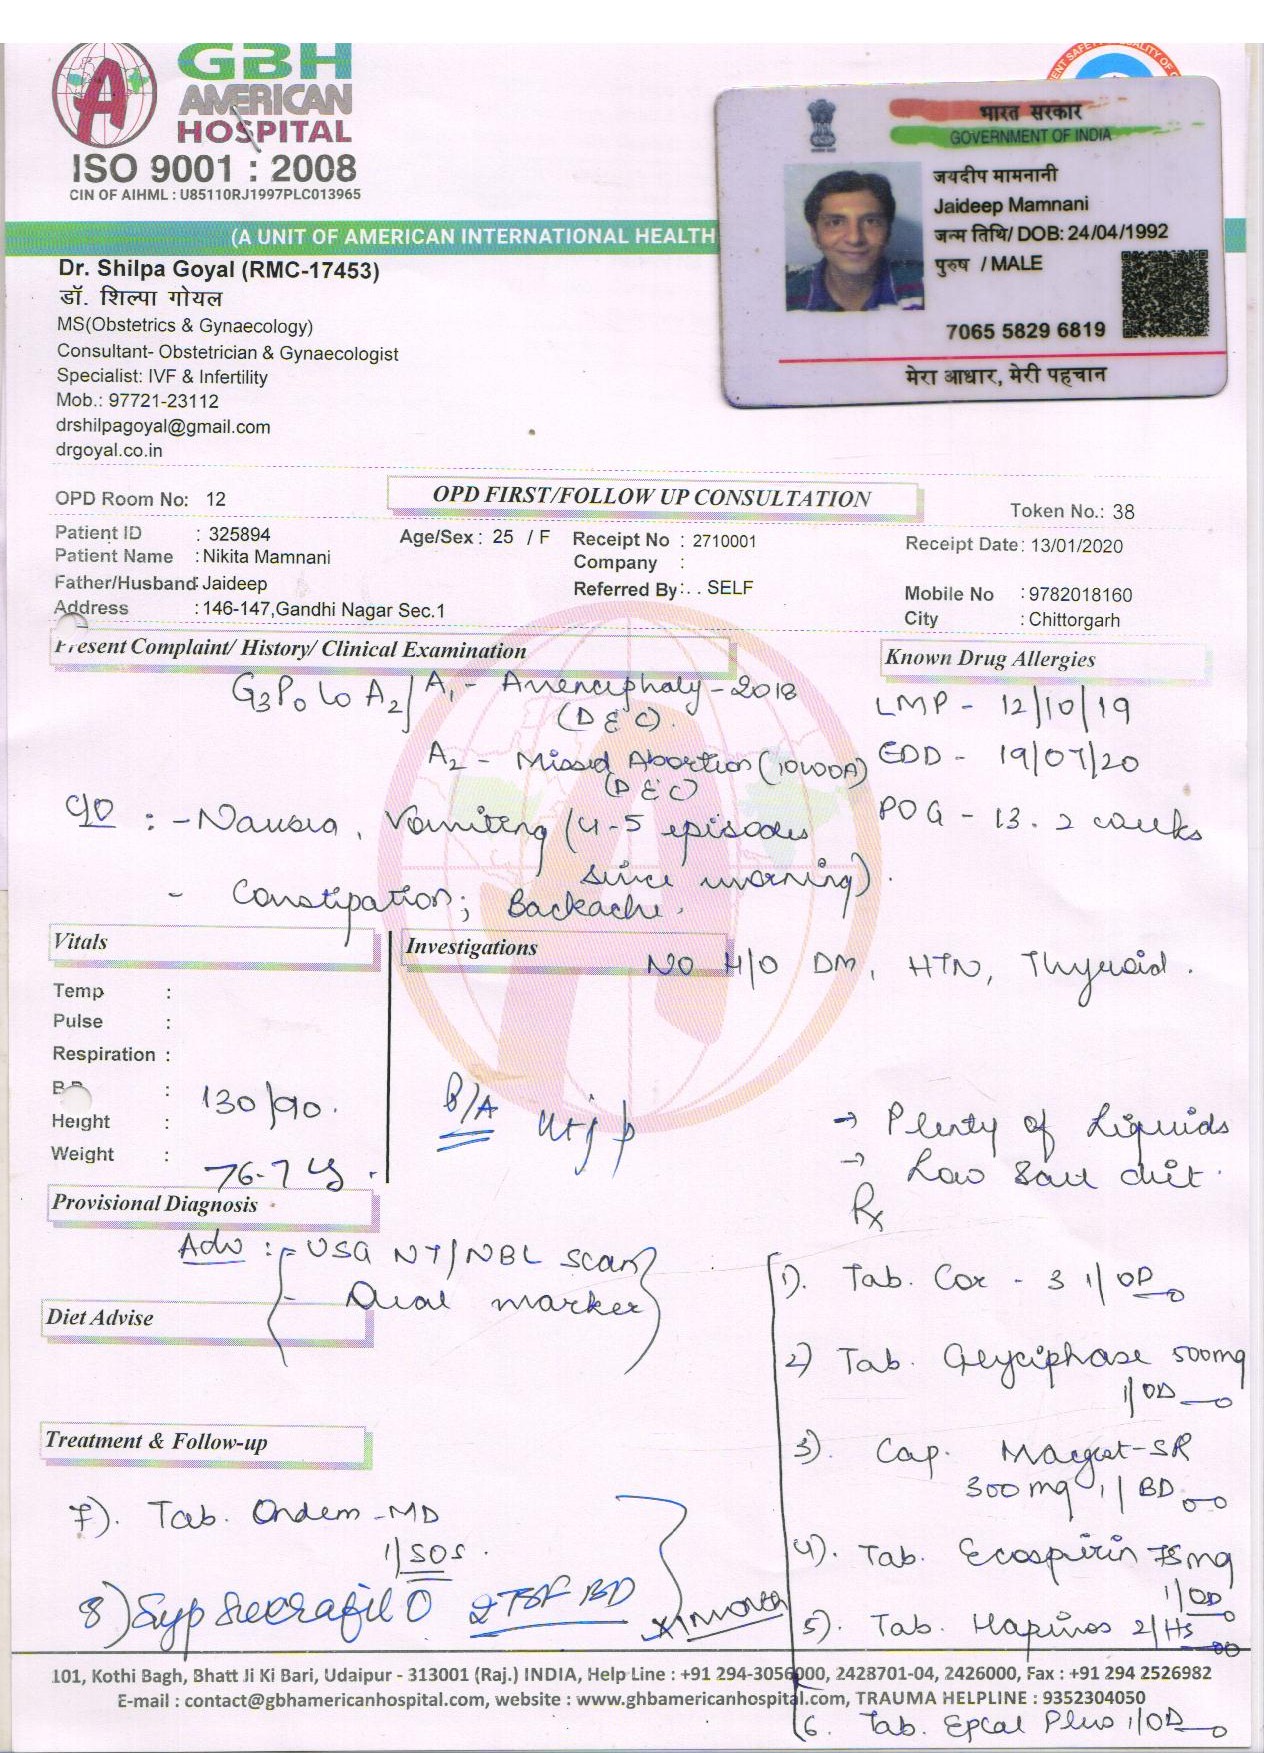 GBH
AMERICAN
HOSPITAL
ISO 9001 : 2008
CIN OF AIHML : U85110RJ1997PLC013965
(A UNIT OF AMERICAN INTERNATIONAL HEALTH
भारत सरकार
GOVERNMENT OF INDIA
जयदीप मामनानी
Jaideep Mamnani
जन्म तिथि/ DOB: 24/04/1992
पुरुष / MALE
7065 5829 6819
मेरा आधार, मेरी पहचान
Dr. Shilpa Goyal (RMC-17453)
डॉ. शिल्पा गोयल
MS(Obstetrics & Gynaecology)
Consultant- Obstetrician & Gynaecologist
Specialist: IVF & Infertility
Mob.: 97721-23112
drshilpagoyal@gmail.com
drgoyal.co.in
OPD Room No: 12
OPD FIRST/FOLLOW UP CONSULTATION
Token No.: 38
Patient ID : 325894 Age/Sex : 25 / F Receipt No : 2710001 Receipt Date : 13/01/2020
Patient Name : Nikita Mamnani Company :
Father/Husband: Jaideep Referred By : . . SELF Mobile No : 9782018160
Address : 146-147,Gandhi Nagar Sec.1 City : Chittorgarh
Present Complaint/ History/ Clinical Examination
Known Drug Allergies
G3P0L0A2/ A1 - Anencephaly - 2018
(D & C).
A2 - Missed Abortion
(D & C)
LMP - 12/10/19
EDD - 19/07/20
POG - 13.2 weeks
C/O : - Nausea, Vomiting (4-5 episodes
since morning).
- Constipation; Backache.
Vitals
Investigations
NO H/O DM, HTN, Thyroid.
Temp :
Pulse :
Respiration :
BP : 130/90.
Height :
Weight : 76.7
→ Plenty of Liquids
→ Low Salt diet.
Provisional Diagnosis
Adv : - USG NT/NBL scan
- Dual marker
Diet Advise
Rx
1). Tab. Cox - 3 1/OD
2) Tab. Glyciphase 500mg
1/OD
3). Cap. SR
300mg 1/BD
4). Tab. Ecospirin 75mg
1/OD
5). Tab. 2/HS
6. Tab. Epcal Plus 1/OD
Treatment & Follow-up
7). Tab. Ondem - MD
1/SOS.
8) Syp Sucrafil O 2TSF BD
x 1 month
101, Kothi Bagh, Bhatt Ji Ki Bari, Udaipur - 313001 (Raj.) INDIA, Help Line : +91 294-3056000, 2428701-04, 2426000, Fax : +91 294 2526982
E-mail : contact@gbhamericanhospital.com, website : www.ghbamericanhospital.com, TRAUMA HELPLINE : 9352304050